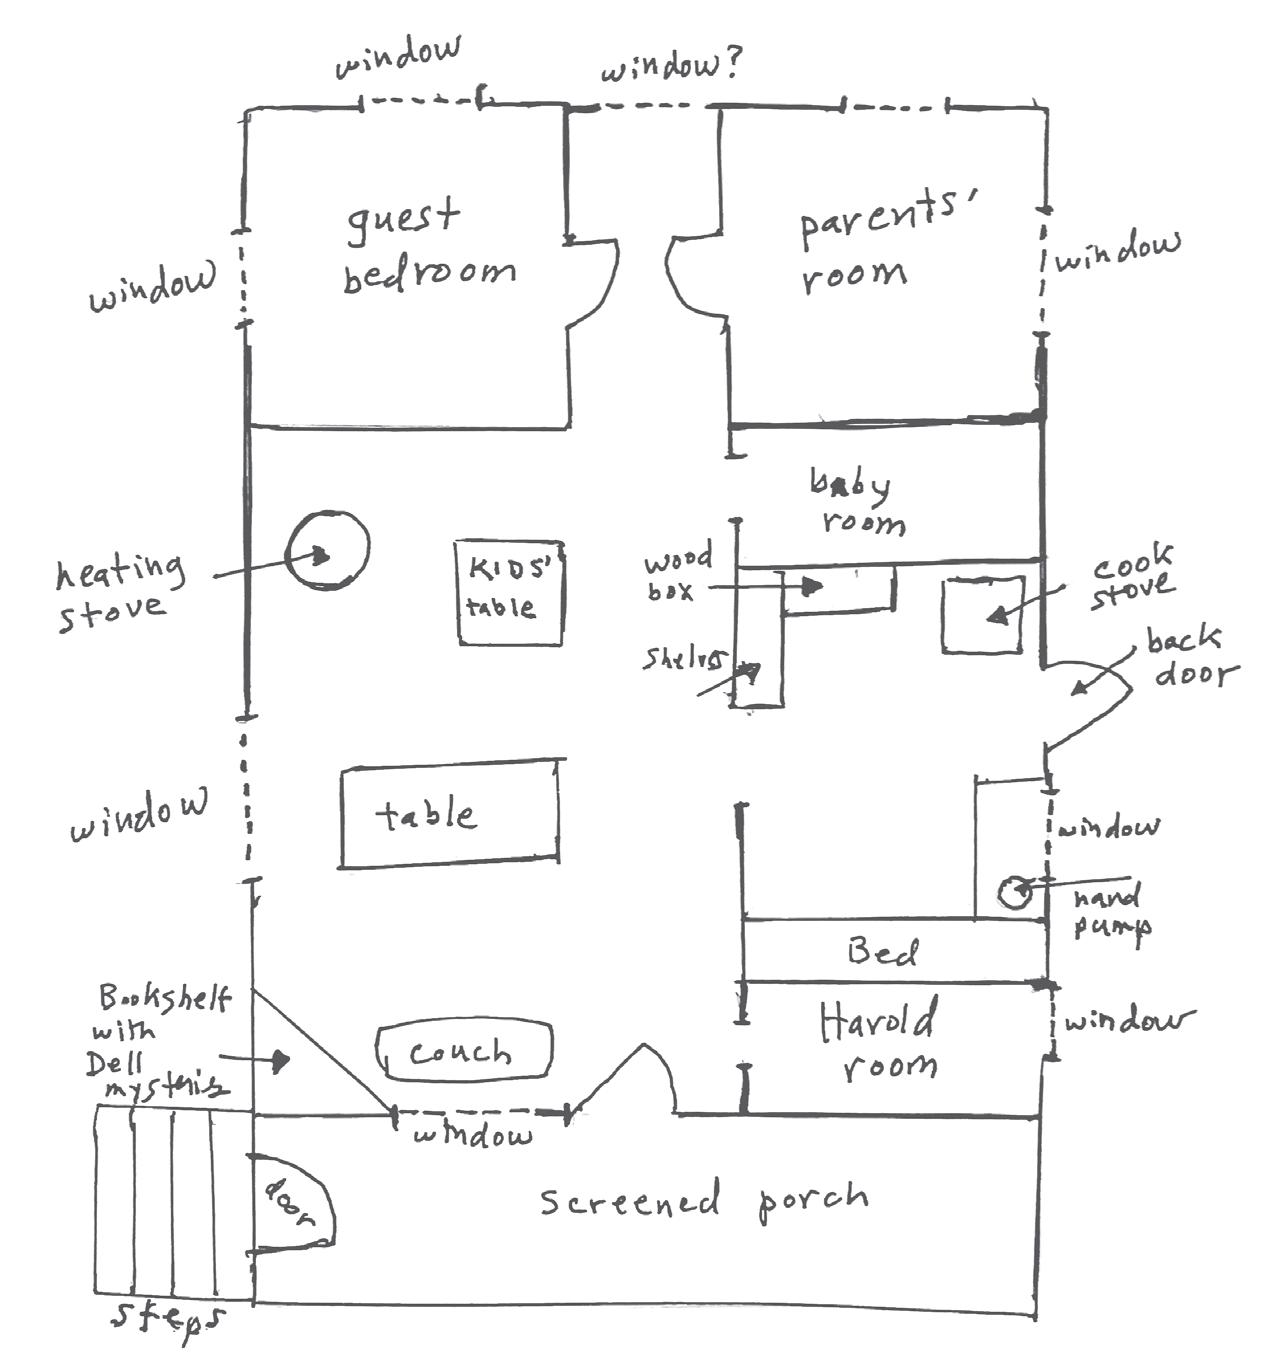 window
window?
guest
bedroom
parents'
room
window
window
baby
room
heating
stove
KIDS'
table
wood
box
cook
stove
shelves
back
door
window
table
window
hand
pump
Bed
Bookshelf
with
Dell
mysteries
couch
Harold
room
window
window
door
screened porch
steps